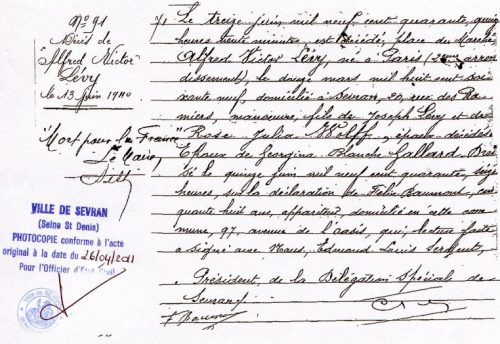 N° 91
Décès de
"Alfred Victor
Lévy
le 13 Juin 1940
"Mort pour la France"
Le Maire,
VILLE DE SEVRAN
(Seine St Denis)
PHOTOCOPIE conforme à l'acte
original à la date du 26/04/2011
Pour l'Officier d'Etat Civil
Le treize juin mil neuf cent quarante, quinze
heures trente minutes, est décédé, place du Marché
Alfred Victor Lévy, né à Paris ( arron
dissement), le douze mars mil huit cent soi
xante neuf, domicilié à Sevran, 20, rue des Ra
miers, manoeuvre, fils de Joseph Lévy et de
Rose Julia Wolff, épouse décédés
Epoux de Georgina Blanche Gallard. Dres
sé le quinze juin mil neuf cent quarante, seize
heures, sur la déclaration de Félix Baumont, cin
quante huit ans, appariteur, domicilié en cette com
mune, 97, avenue de l'oasis, qui, lecture faite
a signé avec Nous, Edmond Louis Sergent,
Président de la Délégation Spéciale de
Sevran
F Baumont